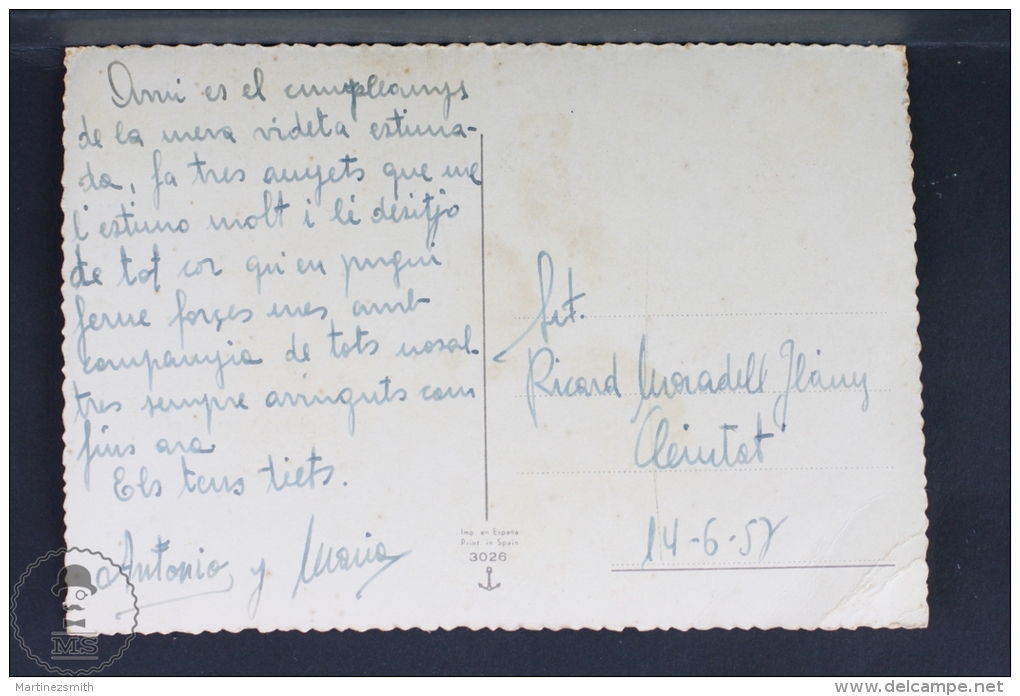 Avui es el cumpleanys
de la meva videta estima-
da, fa tres anyets que me
l'estimo molt i li desitjo
de tot cor qu'en pugui
ferne forçes mes amb
companyia de tots nosal-
tres sempre avinguts com
fins ara
Els teus tiets.
Antonio y Maria
Ricard Moradell
14-6-57
Imp. en España
Print. in Spain
3026
MS
Martinezsmith
www.delcampe.net